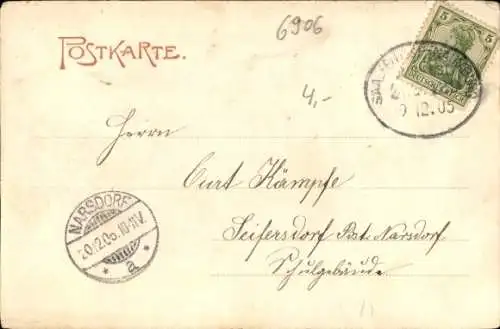 6906
POSTKARTE.
5 5
DEUTSCHES REICH
12.05
4,-
Herrn
Curt Kämpfe
NARSDORF
20.12.05. 10-11V.
* a *
Seifersdorf Post Narsdorf
Schulgebäude